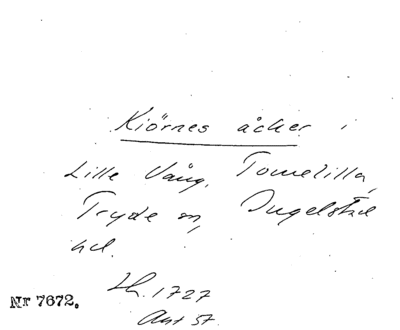 Kiörnes åcker i
Lille Vång, Tomelilla,
Tryde sn, Ingelstad
hd.
Lh. 1727
Ant 57.
Nr 7672.